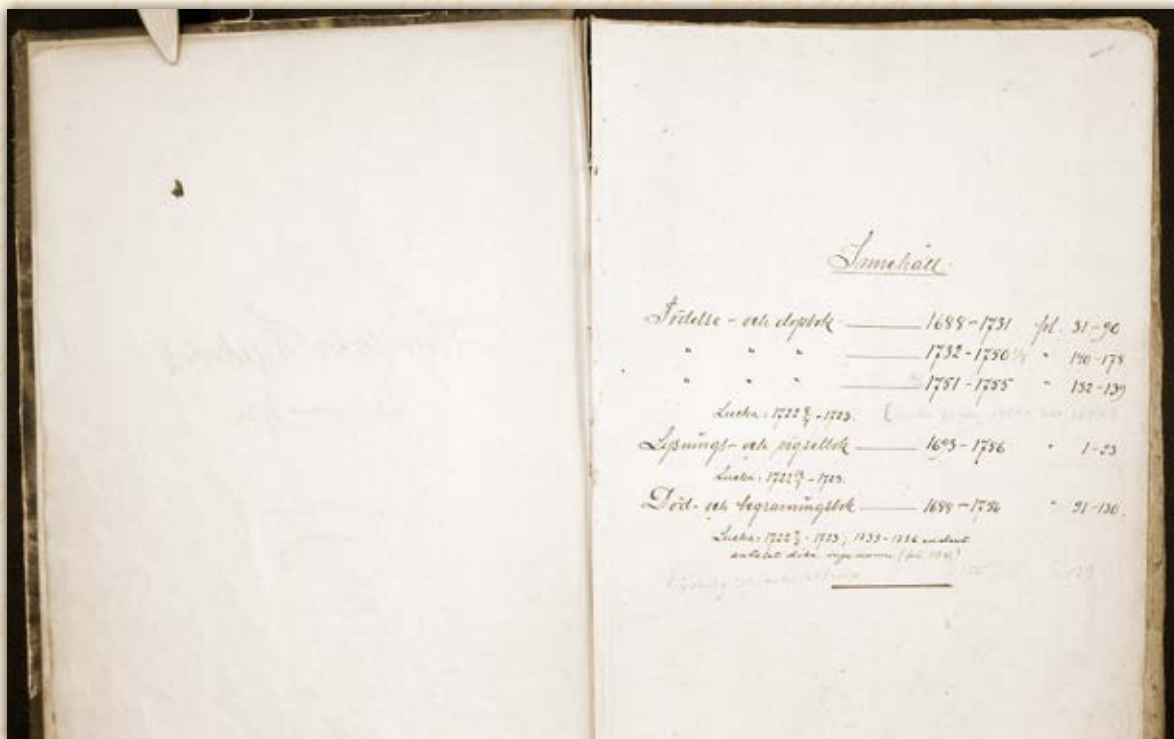 Innehåll.
Födelse- och dopbok — 1688-1731 fol. 31-90
" " " — 1732-1750 " 140-178
" " " — 1751-1755 " 132-139
Lucka: 1722 -1723.
Lysnings- och vigselbok — 1693-1756 " 1-23
Lucka: 1722 -1723.
Död- och begravningsbok — 1688-1756 " 91-130.
Lucka: 1722 -1723; 1733-1736 endast
antalet döda, inga namn